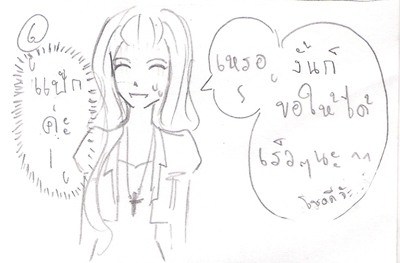 6
แป้ก
ค่ะ
เหรอ
งั้นก็
ขอให้ได้
เร็วๆนะ ^^
โชคดีจ้ะ...